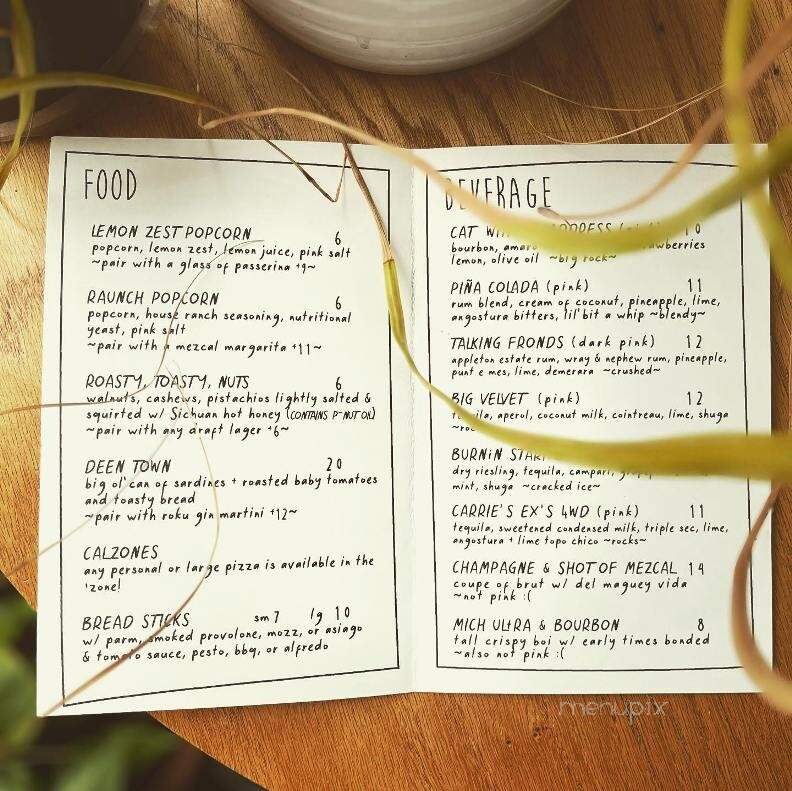 FOOD
LEMON ZEST POPCORN 6
popcorn, lemon zest, lemon juice, pink salt
~pair with a glass of passerina +9~
RAUNCH POPCORN 6
popcorn, house ranch seasoning, nutritional
yeast, pink salt
~pair with a mezcal margarita +11~
ROASTY, TOASTY, NUTS 6
walnuts, cashews, pistachios lightly salted &
squirted w/ Sichuan hot honey (CONTAINS P-NUT OIL)
~pair with any draft lager +6~
DEEN TOWN 20
big ol' can of sardines + roasted baby tomatoes
and toasty bread
~pair with roku gin martini +12~
CALZONES
any personal or large pizza is available in the
'zone!
BREAD STICKS sm 7 lg 10
w/ parm, smoked provolone, mozz, or asiago
& tomato sauce, pesto, bbq, or alfredo
BEVERAGE
CAT
bourbon,
lemon, olive oil ~big rock~
PIÑA COLADA (pink) 11
rum blend, cream of coconut, pineapple, lime,
angostura bitters, lil' bit a whip ~blendy~
TALKING FRONDS (dark pink) 12
appleton estate rum, wray & nephew rum, pineapple,
punt e mes, lime, demerara ~crushed~
BIG VELVET (pink) 12
tequila, aperol, coconut milk, cointreau, lime, shuga
BURNIN
dry riesling, tequila, campari,
mint, shuga ~cracked ice~
CARRIE'S EX'S 4WD (pink) 11
tequila, sweetened condensed milk, triple sec, lime,
angostura + lime topo chico ~rocks~
CHAMPAGNE & SHOT OF MEZCAL 14
coupe of brut w/ del maguey vida
~not pink :(
MICH ULTRA & BOURBON 8
tall crispy boi w/ early times bonded
~also not pink :(
menupix